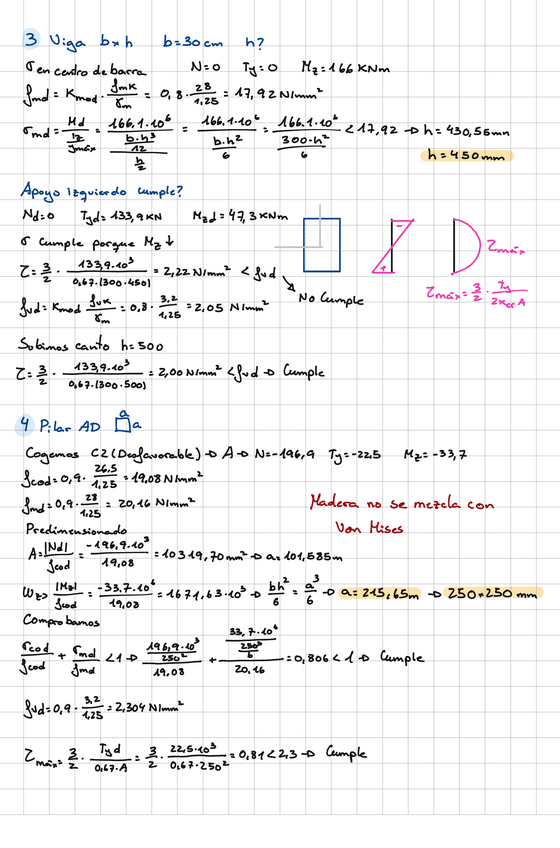 3 Viga b×h b=30cm h?
σ en centro de barra N=0 Ty=0 Mz=166 KNm
fmd = Kmod · fmk/γm = 0,8 · 28/1,25 = 17,92 N/mm²
σmd = Md/(Iz/ymáx) = 166,1·10⁶/((b·h³/12)/(h/2)) = 166,1·10⁶/(b·h²/6) = 166,1·10⁶/(300·h²/6) < 17,92 → h = 430,56mm
h = 450 mm
Apoyo izquierdo cumple?
Nd=0 Tyd=133,9KN Mzd=47,3KNm
σ Cumple porque Mz ↓
τ = 3/2 · 133,9·10³/(0,67·(300·450)) = 2,22 N/mm² < fvd
No Cumple
fvd = Kmod fvk/γm = 0,8 · 3,2/1,25 = 2,05 N/mm²
- + τmáx
τmáx = 3/2 · Ty/(2Kcr A)
Subimos canto h=500
τ = 3/2 · 133,9·10³/(0,67·(300·500)) = 2,00 N/mm² < fvd → Cumple
4 Pilar AD a a
Cogemos C2 (Desfavorable) → A → N=-196,9 Ty=-22,5 Mz=-33,7
fcod = 0,9 · 26,5/1,25 = 19,08 N/mm²
fmd = 0,9 · 28/1,25 = 20,16 N/mm²
Madera no se mezcla con
Von Mises
Predimensionado
A = |Nd|/fcod = -196,9·10³/19,08 = 10319,70mm² → a = 101,585m
Wz> |Mz|/fcod = -33,7·10⁶/19,08 = 1671,63·10³ → bh²/6 = a³/6 → a = 215,65m → 250×250 mm
Comprobamos
σcod/fcod + σmd/fmd < 1 → (196,9·10³/250²)/19,08 + (33,7·10⁶/(250³/6))/20,16 = 0,806 < 1 → Cumple
fvd = 0,9 · 3,2/1,25 = 2,304 N/mm²
τmáx = 3/2 · Tyd/(0,67·A) = 3/2 · 22,5·10³/(0,67·250²) = 0,81 < 2,3 → Cumple